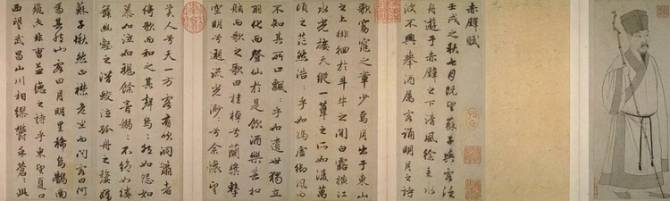 赤壁賦
壬戌之秋七月既望蘇子與客泛
舟遊于赤壁之下清風徐来水
波不興舉酒屬客誦明月之詩
歌窈窕之章少焉月出于東山
之上徘徊於斗牛之間白露横江
水光接天縱一葦之所如淩萬
頃之茫然浩〻乎如馮虛御風而
不知其所止飄〻乎如遺世獨立
羽化而登仙於是飲酒樂甚扣
舷而歌之歌曰桂棹兮蘭槳擊
空明兮遡流光渺〻兮余懷望
美人兮天一方客有吹洞簫者
倚歌而和之其聲嗚〻然如怨如
慕如泣如訴餘音嫋〻不絶如縷
舞幽壑之潜蛟泣孤舟之嫠婦
蘇子愀然正襟危坐而問客曰何
爲其然也客曰月明星稀烏鵲南
飛此非曹孟德之詩乎東望夏口
西望武昌山川相繆鬱乎蒼〻